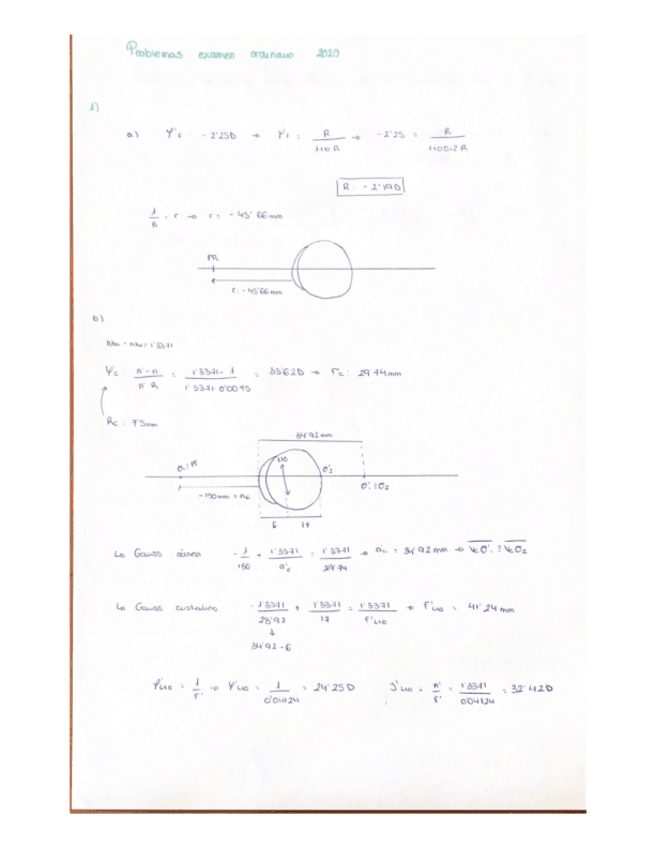 Problemas examen ordinario 2020
1)
a) φ'c = -2'25D → φ'c = R / 1+δR → -2'25 = R / 1+0'012R
R = -2'19D
1/R = r → r = -45'66mm
PR
r = -45'66mm
b)
nha = nhu = 1'3371
φc = n'-n / n'R = 1'3371-1 / 1'3371·0'0075 = 33'62D → f'c = 29'74mm
Rc = 7'5mm
34'92mm
-150mm = ac
O'2
O'1 ≡ O2
6 17
↳ Gauss córnea -1/150 + 1'3371/a'c = 1'3371/29'74 → a'c = 34'92mm → VcO'1 ≡ VcO2
↳ Gauss cristalino -1'3371/28'92 + 1'3371/17 = 1'3371/f'LIO → f'LIO = 41'24mm
34'92-6
φ'LIO = 1/f' → φ'LIO = 1/0'04124 = 24'25D = n'/f' = 1'3371/0'04124 = 32'42D